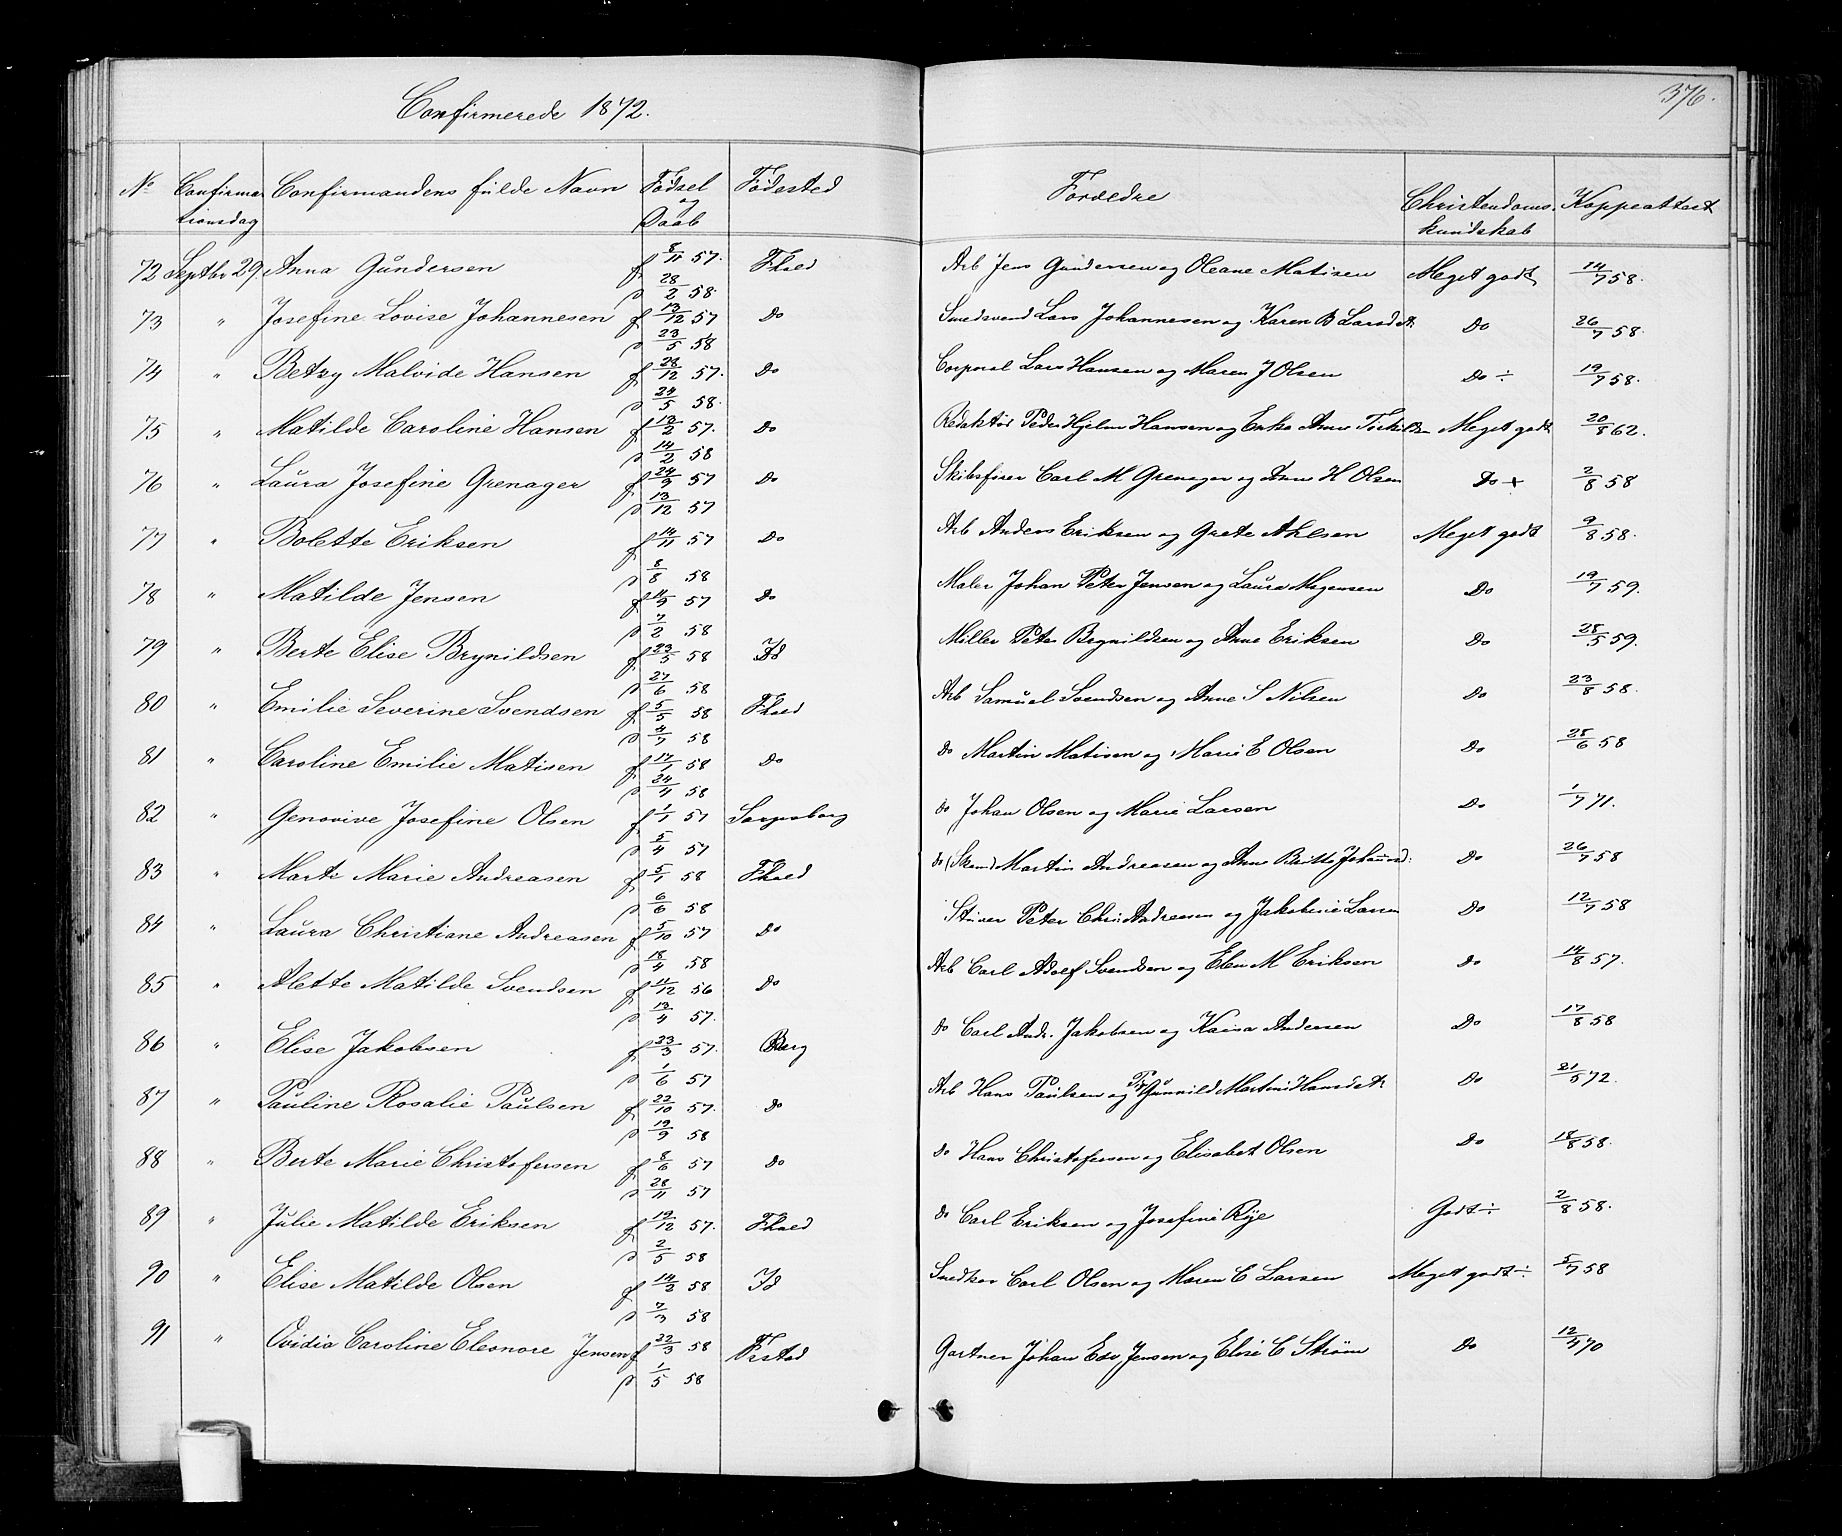 Confirmerede 1872.
376.
No Confirmationsdag Confirmandens fulde Navn Fødsel og Daab Fødested Forældre Christendomskundskab Koppeattest
72 Septbr 29. Anna Gundersen f 8/11 57. d 28/2 58. Fhald Arb Jens Gundersen og Oleane Matisen Meget godt 14/7 58.
73 " Josefine Lovise Johannesen f 13/12 57 d 23/5 58 Do Smedsvend Lars Johannesen og Karen B Larsdt. Do 26/7 58.
74 " Betzy Malvide Hansen f 28/12 57. d 24/5 58. Do Corporal Lars Hansen og Maren J Olsen Do ÷ 19/7 58.
75 " Matilde Caroline Hansen f 12/2 57. d 14/2 58 Do Redaktør Peder Hjelm Hansen og Enke Anne Meget godt 20/8 62.
76 " Laura Josefine Grenager f 24/9 57 d 13/12 57 Do Skibsfører Carl M Grenager og Anne H Olsen Do + 2/8 58
77 " Bolette Eriksen f 14/11 57 d 8/8 58 Do Arb Anders Eriksen og Grete Ahlsen Meget godt 9/8 58.
78 " Matilde Jensen f 11/9 57 d 7/2 58 Do Maler Johan Peter Jensen og Laura Mogensen Do 19/7 59.
79 " Berte Elise Brynildsen f 23/5 58 d 27/6 58 Id Miller Peter Brynildsen og Anne Eriksen Do 28/5 59.
80 " Emilie Severine Svendsen f 5/5 58 d 4/7 58 Fhald Arb Samuel Svendsen og Anne S Nilsen Do 23/8 58.
81 " Caroline Emilie Matisen f 17/1 58 d 24/4 58 Do do Martin Matisen og Marie E Olsen Do 28/6 58
82 " Genovive Josefine Olsen f 1/1 57 d 5/4 57 Sarpsborg do Johan Olsen og Marie Larsen Do 1/7 71.
83 " Marte Marie Andreasen f 5/1 58 d 6/6 58 Fhald do Martin Andreasen og Anne Britte Do 26/7 58
84 " Laura Christiane Andreasen f 5/10 57 d 18/4 58 Do Peter Chri Andreasen og Jakobine Larsen Do 12/7 58
85 " Alette Matilde Svendsen f 11/12 56 d 13/4 57. Do Arb Carl Adolf Svendsen og Elen M Eriksen Do 14/8 57.
86 " Elise Jakobsen f 23/3 57. d 1/6 57 Berg do Carl Andr. Jakobsen og Kaisa Andersen Do 17/8 58
87 " Pauline Rosalie Paulsen f 22/10 57. d 19/9 58 Do Arb Hans Paulsen og Gunnild Martine Hansdt. Do 21/5 72.
88 " Berte Marie Christofersen f 8/6 57 d 28/11 57 Do do Hans Christofersen og Elisabet Olsen Do 18/8 58.
89 " Julie Matilde Eriksen f 19/12 57. d 2/5 58 Fhald do Carl Eriksen og Josefine Rye Godt ÷ 2/8 58.
90 " Elise Matilde Olsen f 14/2 58 d 7/3 58 Id Snedker Carl Olsen og Maren C Larsen Meget godt ÷. 5/7 58
91 " Ovidia Caroline Eleonore Jensen f 22/3 58 d 1/5 58 Frstad Gartner Johan Edv Jensen og Elise C Strøm Do 12/4 70